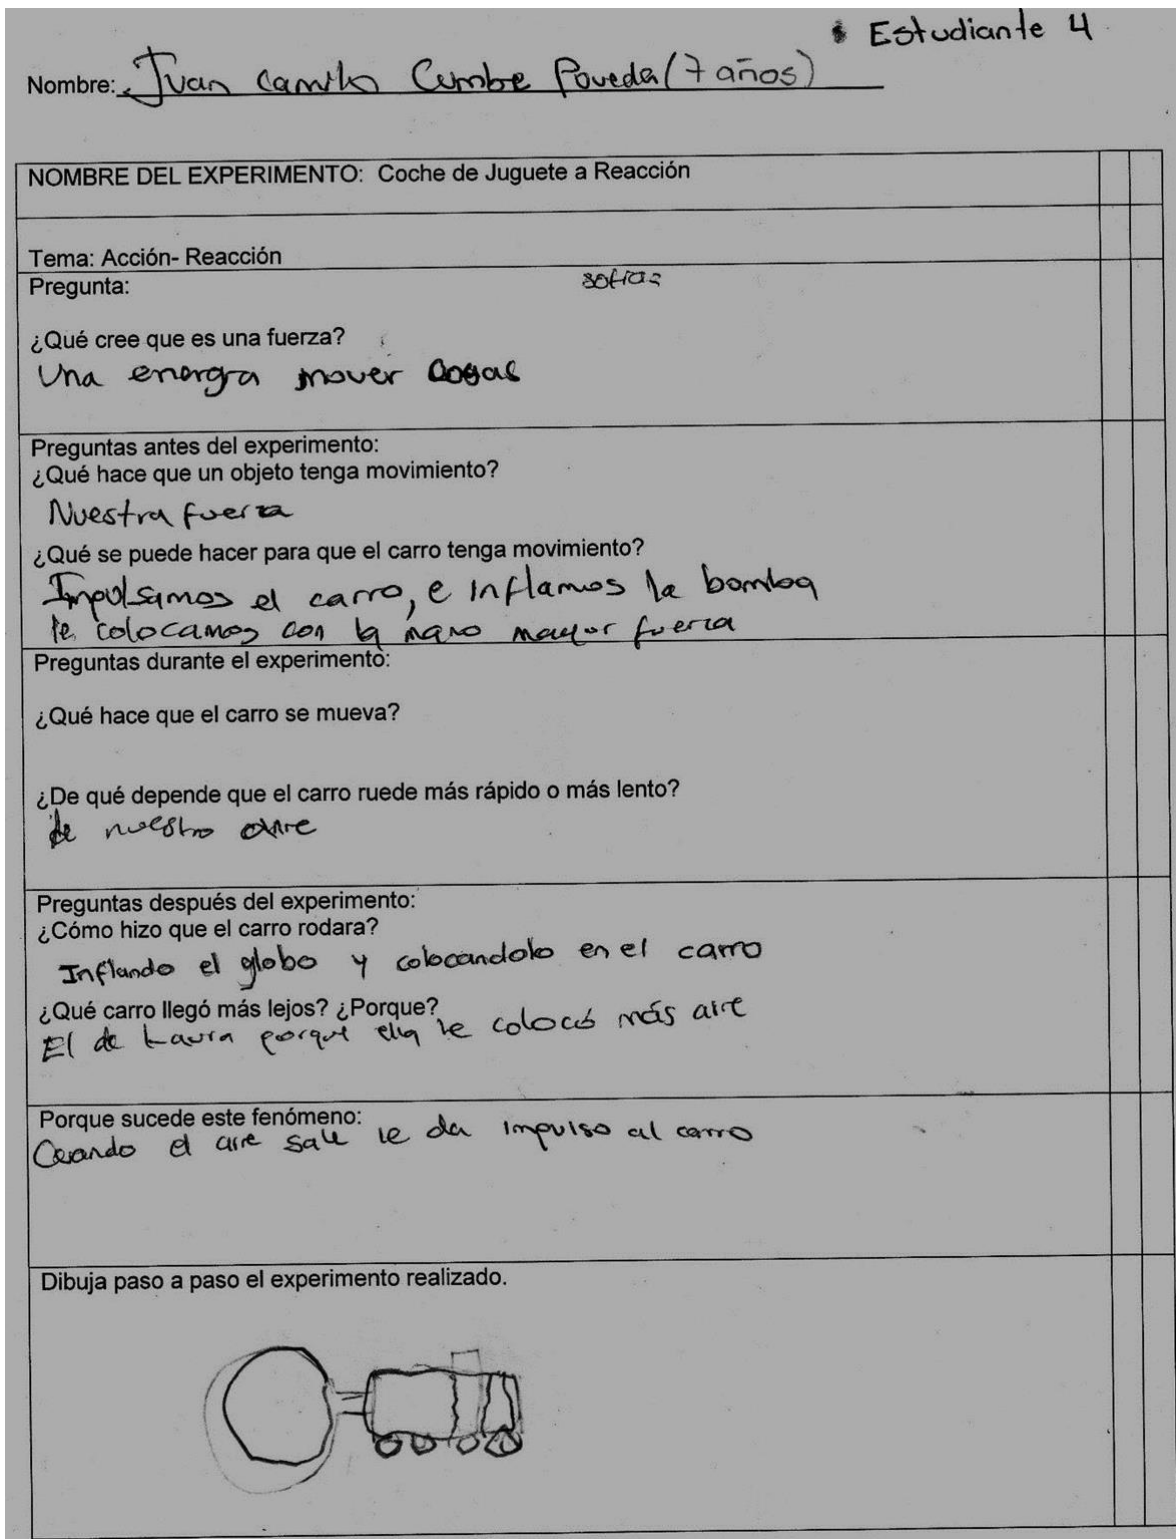 Estudiante 4
Nombre: Juan Camilo Cumbe Poveda (7 años)
NOMBRE DEL EXPERIMENTO: Coche de Juguete a Reacción
Tema: Acción- Reacción
Pregunta:
¿Qué cree que es una fuerza?
Una energia mover cosas
Preguntas antes del experimento:
¿Qué hace que un objeto tenga movimiento?
Nuestra fuerza
¿Qué se puede hacer para que el carro tenga movimiento?
Impulsamos el carro, e inflamos la bomba
le colocamos con la mano mayor fuerza
Preguntas durante el experimento:
¿Qué hace que el carro se mueva?
¿De qué depende que el carro ruede más rápido o más lento?
de nuestro aire
Preguntas después del experimento:
¿Cómo hizo que el carro rodara?
Inflando el globo y colocandolo en el carro
¿Qué carro llegó más lejos? ¿Porque?
El de Laura porque ella le colocó más aire
Porque sucede este fenómeno:
Cuando el aire sale le da impulso al carro
Dibuja paso a paso el experimento realizado.